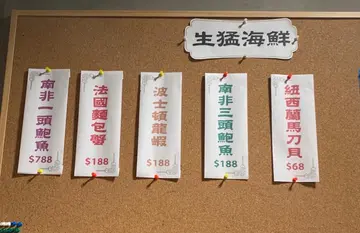 生猛海鮮
南非一頭鮑魚
$788
法國麵包蟹
$188
波士頓龍蝦
$188
南非三頭鮑魚
$188
紐西蘭馬刀貝
$68